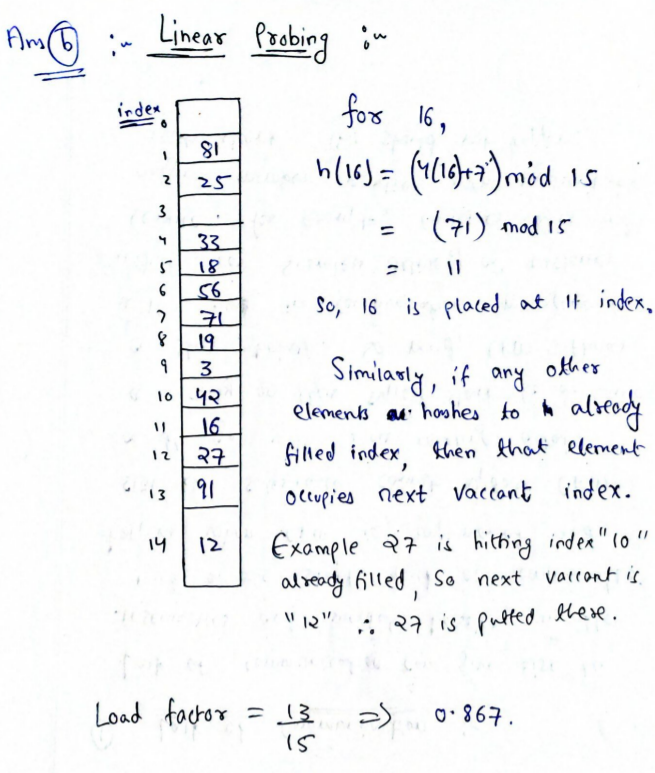 Ans (b) :- Linear Probing :-
index
0
1 81
2 25
3
4 33
5 18
6 56
7 71
8 19
9 3
10 42
11 16
12 27
13 91
14 12
for 16,
h(16) = (4(16)+7) mod 15
= (71) mod 15
= 11
So, 16 is placed at 11 index.
Similarly, if any other
elements hashes to already
filled index, then that element
occupies next vaccant index.
Example 27 is hitting index "10"
already filled, So next vaccant is
"12" ∴ 27 is putted there.
Load factor = 13/15 => 0.867.